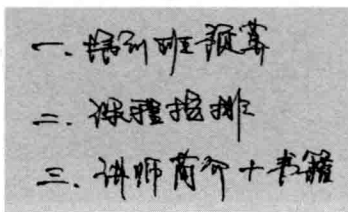 一. 培训班预算
二. 课程安排
三. 讲师简介+书籍